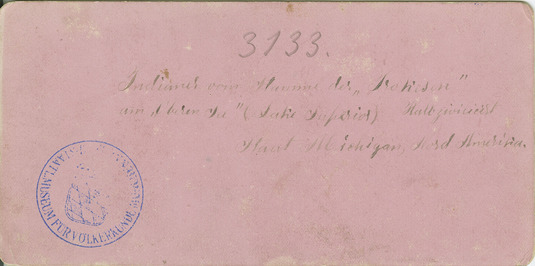 3133.
Indianer vom Stamme der „Irokesen"
am „Oberen See" (Lake Superior) Halbzivilisiert
Staat Michigan, Nord Amerika.
STAATL. MUSEUM FÜR VÖLKERKUNDE